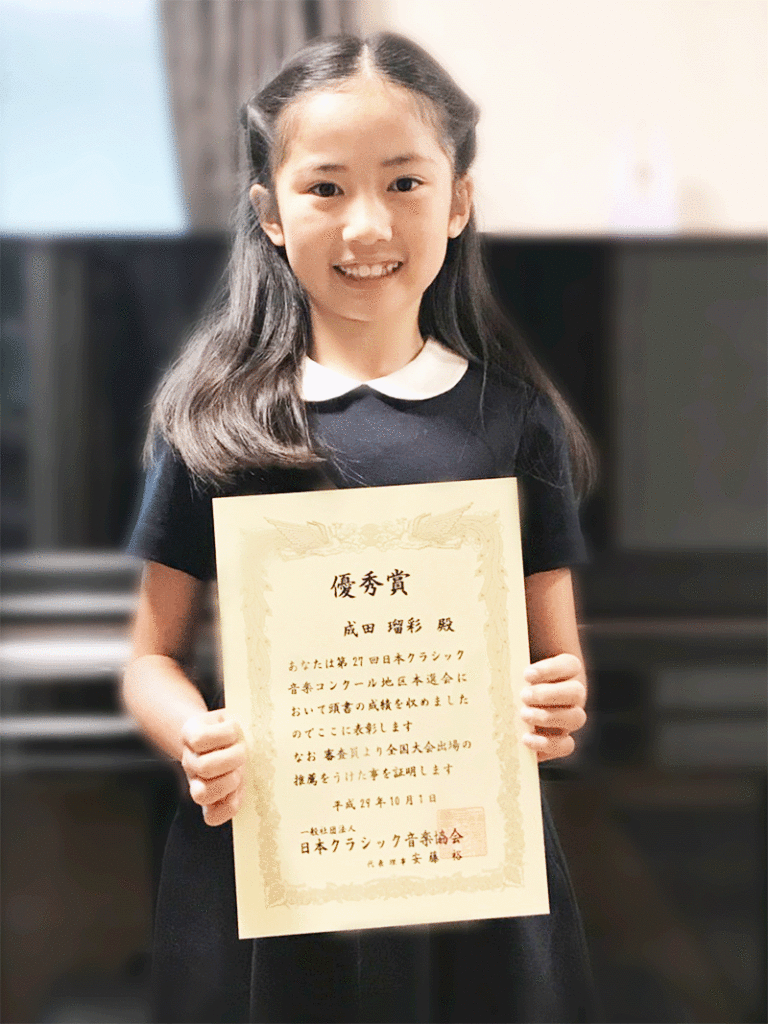 優秀賞
成田 瑠彩 殿
あなたは第27回日本クラシック
音楽コンクール地区本選会に
おいて頭書の成績を収めました
のでここに表彰します
なお 審査員より全国大会出場の
推薦をうけた事を証明します
平成29年10月1日
一般社団法人
日本クラシック音楽協会
代表理事 安藤 裕